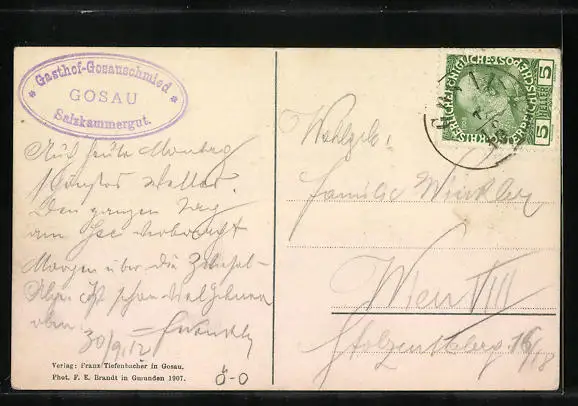 Gasthof-Gosauschmied
GOSAU
Salzkammergut.
Auch heute Montag
Wetter.
Den ganzen Tag
am See verbracht
Morgen über die Zwiesel-
Alpe. ist schon viel Schnee
oben.
30/9.12
Verlag: Franz Tiefenbacher in Gosau.
Phot. F. E. Brandt in Gmunden 1907.
Ö-O
KAISERLICHE KÖNIGLICHE ÖSTERREICHISCHE POST
5 HELLER 5
Wohlgeb.
Familie Winkler
Wien VIII
16/18